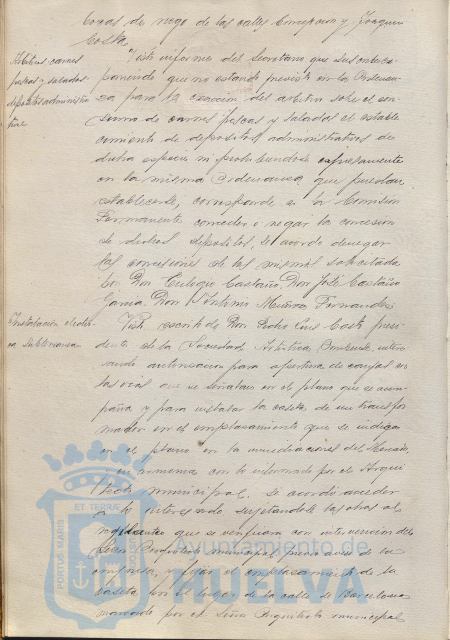 bocas de riego de las calles Concepción y Joaquín
Costa.
Arbitrios carnes
pescas y saladas
depósitos administra
tivos
Visto informe del Secretario que suscribe ex
poniendo que no estando previsto en la Ordenan
za para la exacción del arbitrio sobre el con
sumo de carnes frescas y saladas el estable
cimiento de depósitos administrativos de
dicha especie ni prohibiéndose expresamente
en la misma Ordenanza que puedan
establecerse, corresponde a la Comisión
Permanente conceder o negar la concesión
de dichos depósitos, se acordó denegar
las concesiones de los mismos solicitada
por Don Eulogio Castaño, Don José Castaño
García, Don Antonio Muñoz Fernández
Instalación eléctri
ca subterranea
Visto escrito de Don Pedro Coste presi
dente de la Sociedad
sando autorización para apertura de zanjas en
las vías que se señalan en el plano que se acom
paña y para instalar la caseta de un transfor
mador en el emplazamiento que se indica
en el plano en las inmediaciones del Mercado,
en armonía con lo informado por el Arqui
tecto municipal, se acordó acceder
a lo interesado sujetándose las obras al
que se verifiquen con intervención del
Señor Arquitecto municipal previo aviso de la
empresa y fijar el emplazamiento de la
caseta por el lugar de la calle de Barcelona
marcado por el Señor Arquitecto municipal
PORTUS MARIS ET TERRAE CUSTODIA
Ayuntamiento de
HUELVA